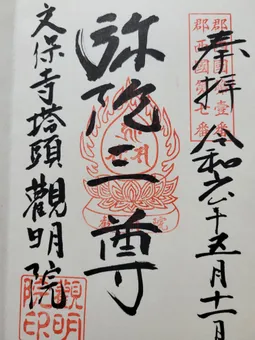 奉拝
令和六年五月十一日
弥陀三尊
文保寺塔頭觀明院
觀明院印